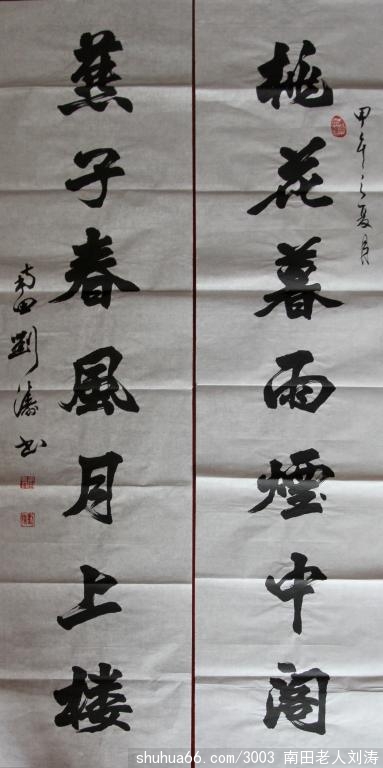 桃花暮雨煙中阁
甲午之夏月
燕子春風月上楼
南田劉濤书
shuhua66.com/3003 南田老人刘涛